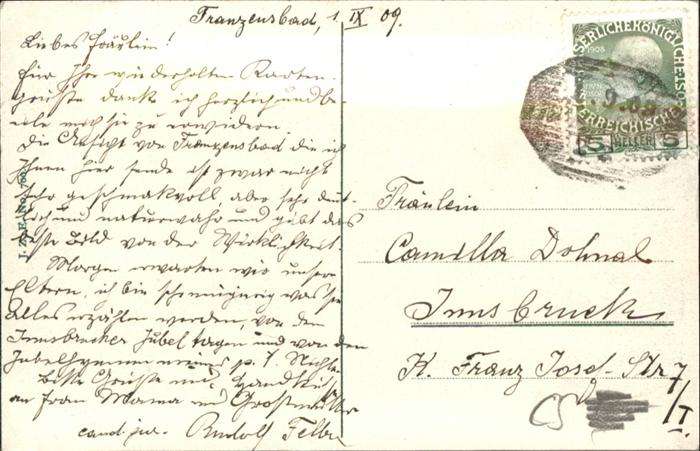 Franzensbad, 1. IX 09.
Liebes Fräulein!
Für Ihre wiederholten Karten-
grüße danke ich herzlich und be-
eile mich sie zu erwidern.
Die Ansicht von Franzensbad die ich
Ihnen hier sende ist zwar nicht
sehr geschmakvoll, aber sehr deut-
lich und naturwahr und gibt das
beste Bild von der Wirklichkeit.
Morgen erwarten wir unsere
Eltern, ich bin schon neugierig was sie
alles erzählen werden, von den
Innsbrucker Jubeltagen und von den
Jubelhymnen meines
Beste Grüße und Handkuß
an Frau Mama und Großmutter
cand. jur. Rudolf
J. Z. E. No. 760
SERLICHEKÖNIGLICH
1908
TERREICHISCHE
5 HELLER 5
Fräulein
Camilla Dolnal
Innsbruck
K. Franz Josef-Str 7/I.